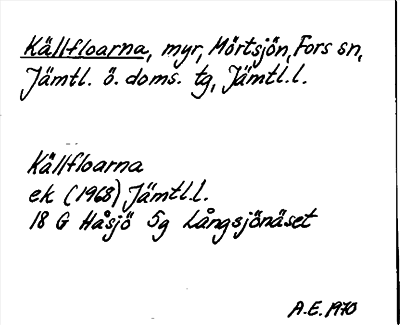 Källfloarna, myr, Mörtsjön, Fors sn,
Jämtl. ö. doms. tg, Jämtl.l.
Källfloarna
ek (1968) Jämtl.l.
18 G Håsjö 5g Långsjönäset
A.E. 1970